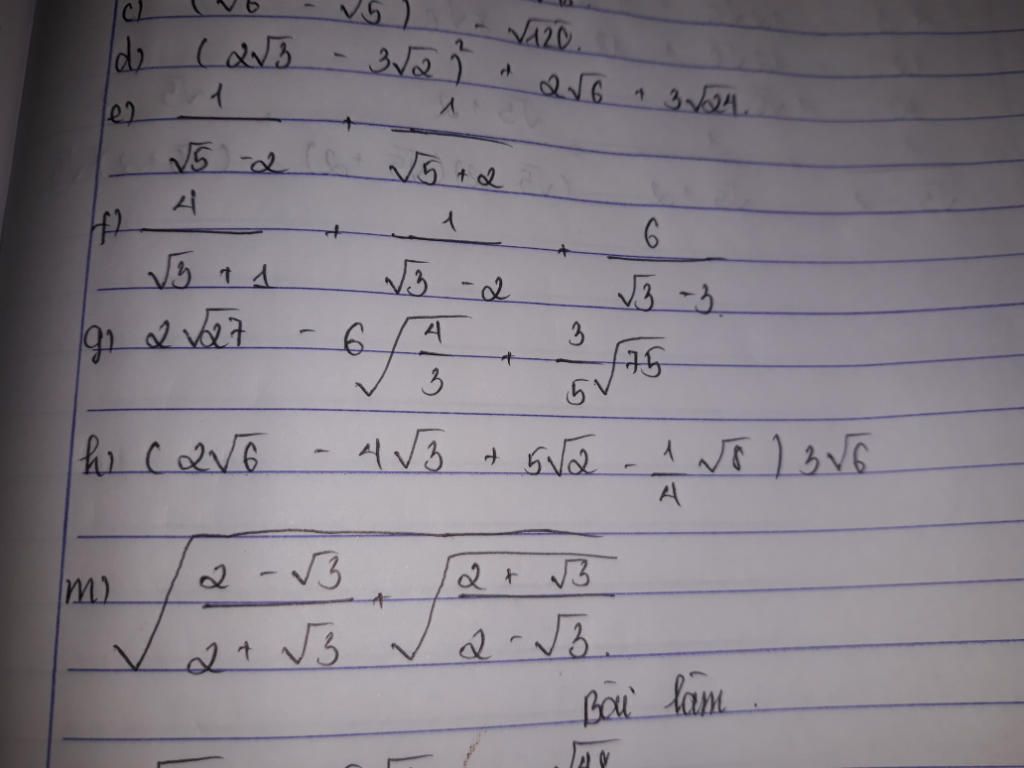 c) (√6 - √5) - √120.
d) (2√3 - 3√2)² + 2√6 + 3√24.
e) 1/(√5 - 2) + 1/(√5 + 2)
f) 4/(√3 + 1) + 1/(√3 - 2) + 6/(√3 - 3)
g) 2√27 - 6√(4/3) + 3/5 √75
h) (2√6 - 4√3 + 5√2 - 1/4 √8) 3√6
m) √((2 - √3)/(2 + √3) + √((2 + √3)/(2 - √3)).
Bài làm.